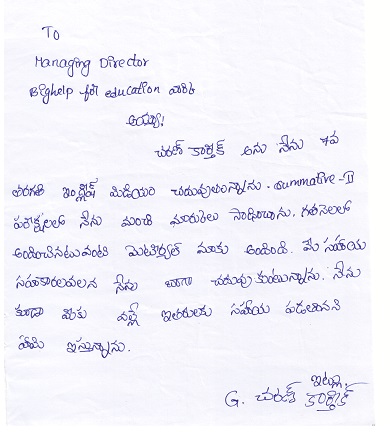 To
Managing Director
Bighelp for education వారికి
అయ్యా!
చరణ్ కార్తిక్ అను నేను 7వ
తరగతి ఇంగ్లీష్ మీడియం చదువుతున్నాను. Summative-II
పరీక్షలలో నేను మంచి మార్కులు సాధించాను. గతనెలలో
అందించినటువంటి మెటీరియల్ మాకు అందింది. మీ సహాయ
సహకారాలవలన నేను బాగా చదువుకుంటున్నాను. నేను
కూడా మీకు వల్లే ఇతరులకు సహాయ పడతానని
హామి ఇస్తున్నాను.
ఇట్లు
G. చరణ్ కార్తిక్